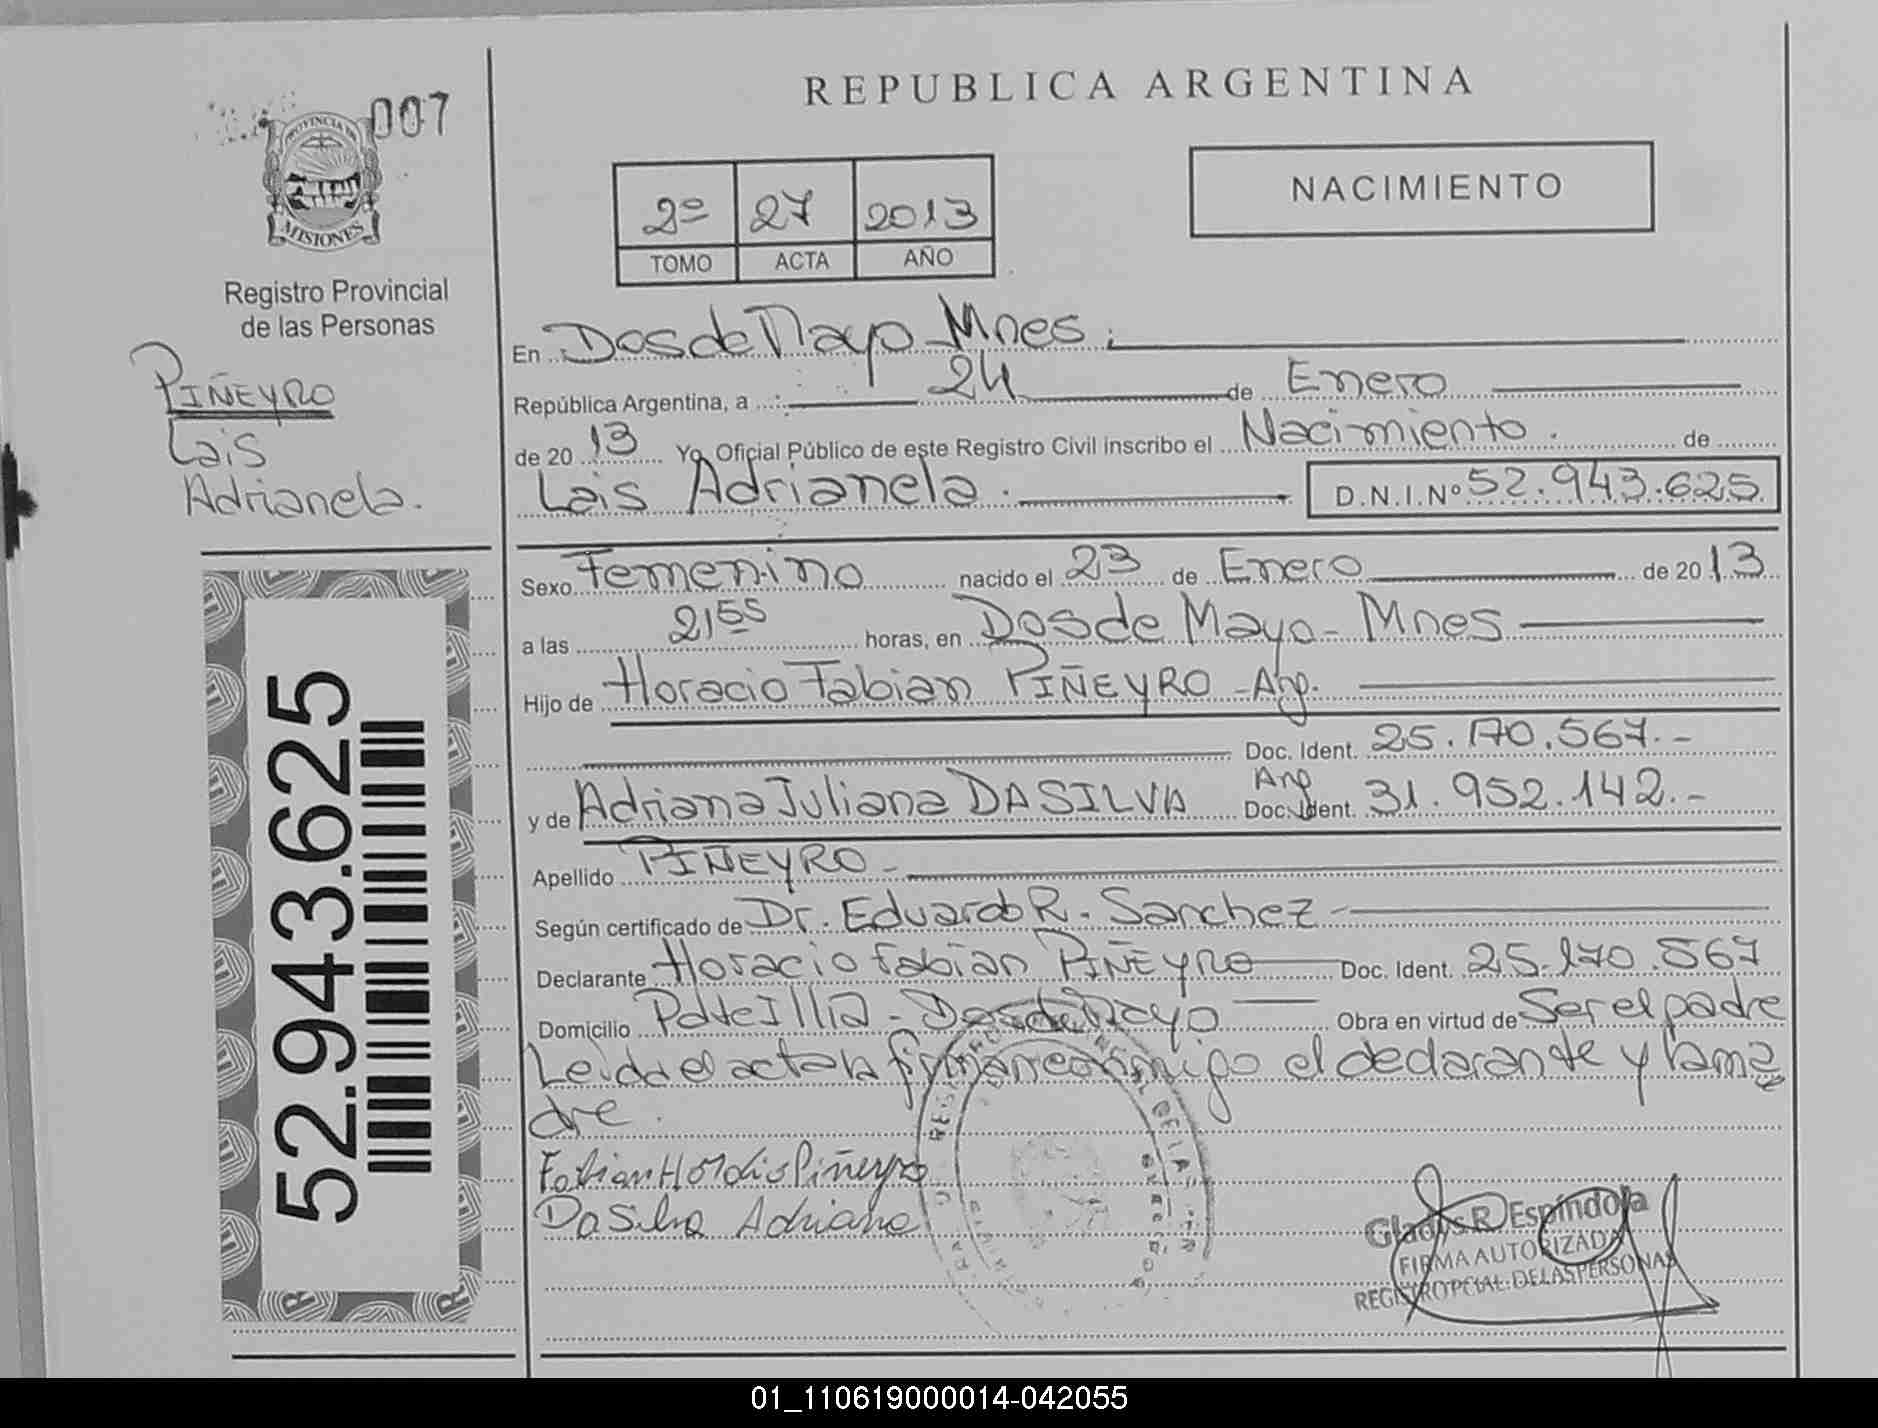 007
PROVINCIA DE
MISIONES
Registro Provincial
de las Personas
PIÑEYRO
Lais
Adrianela.
52.943.625
REPUBLICA ARGENTINA
NACIMIENTO
2º 27 2013
TOMO ACTA AÑO
En Dos de Mayo - Mnes.
República Argentina, a 24 de Enero
de 20 13 Yo, Oficial Público de este Registro Civil inscribo el Nacimiento. de
Lais Adrianela. D.N.I.Nº 52.943.625
Sexo Femenino nacido el 23 de Enero de 20 13
a las 21 55 horas, en Dos de Mayo - Mnes
Hijo de Horacio Fabian PIÑEYRO - Arg.
Doc. Ident. 25.170.567.-
y de Adriana Juliana DA SILVA Arg Doc. Ident. 31.952.142.-
Apellido PIÑEYRO -
Según certificado de Dr. Eduardo R. Sanchez -
Declarante Horacio Fabian PIÑEYRO Doc. Ident. 25.170.567
Domicilio Pote Illia - Dos de Mayo Obra en virtud de Ser el padre
Leida el acta la firman conmigo el declarante y la ma
dre.
Fabian Horacio Piñeyro
Da Silva Adriana
Gladys R. Espíndola
FIRMA AUTORIZADA
REGISTRO PCIAL. DE LAS PERSONAS
01_110619000014-042055